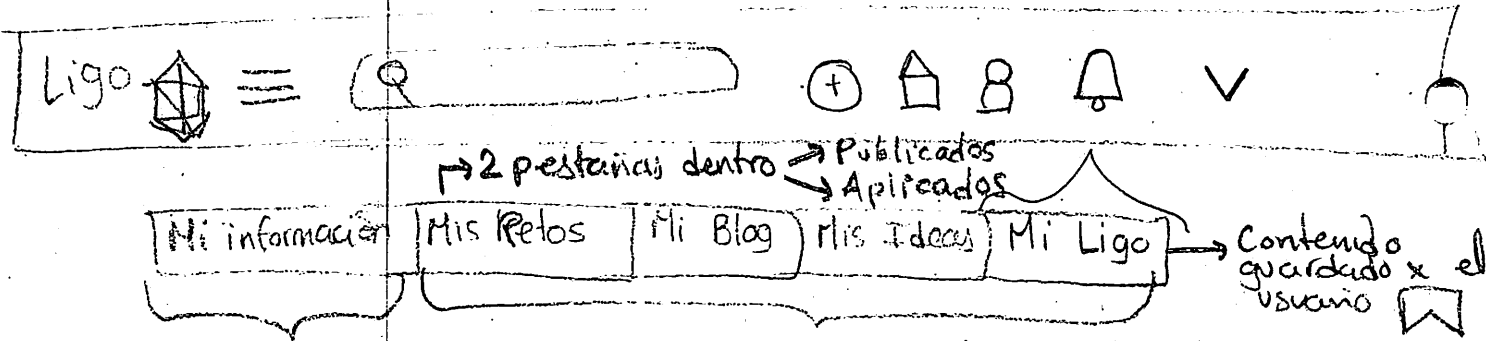 Ligo
→ 2 pestañas dentro → Publicados
→ Aplicados
Mi información Mis Retos Mi Blog Mis Ideas Mi Ligo → Contenido
guardado x el
usuario